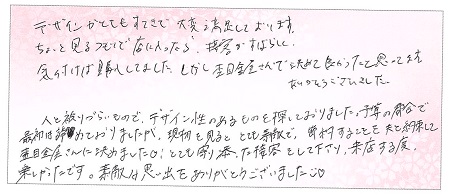 デザインがとてもすてきで大変満足しております。
ちょっと見るつもりで店に入ったら、接客がすばらしく
気付けば購入してました。しかし杢目金屋さんで決めて良かったと思ってます
ありがとうございました。
人と被りづらいもので、デザイン性のあるものを探しておりました。予算の都合で
最初は諦めておりましたが、現物を見るととても素敵で、 することを夫と約束して
杢目金屋さんに決めました♡とても寄り添った接客をして下さり、来店する度、
楽しかったです。素敵な思い出をありがとうございました♡